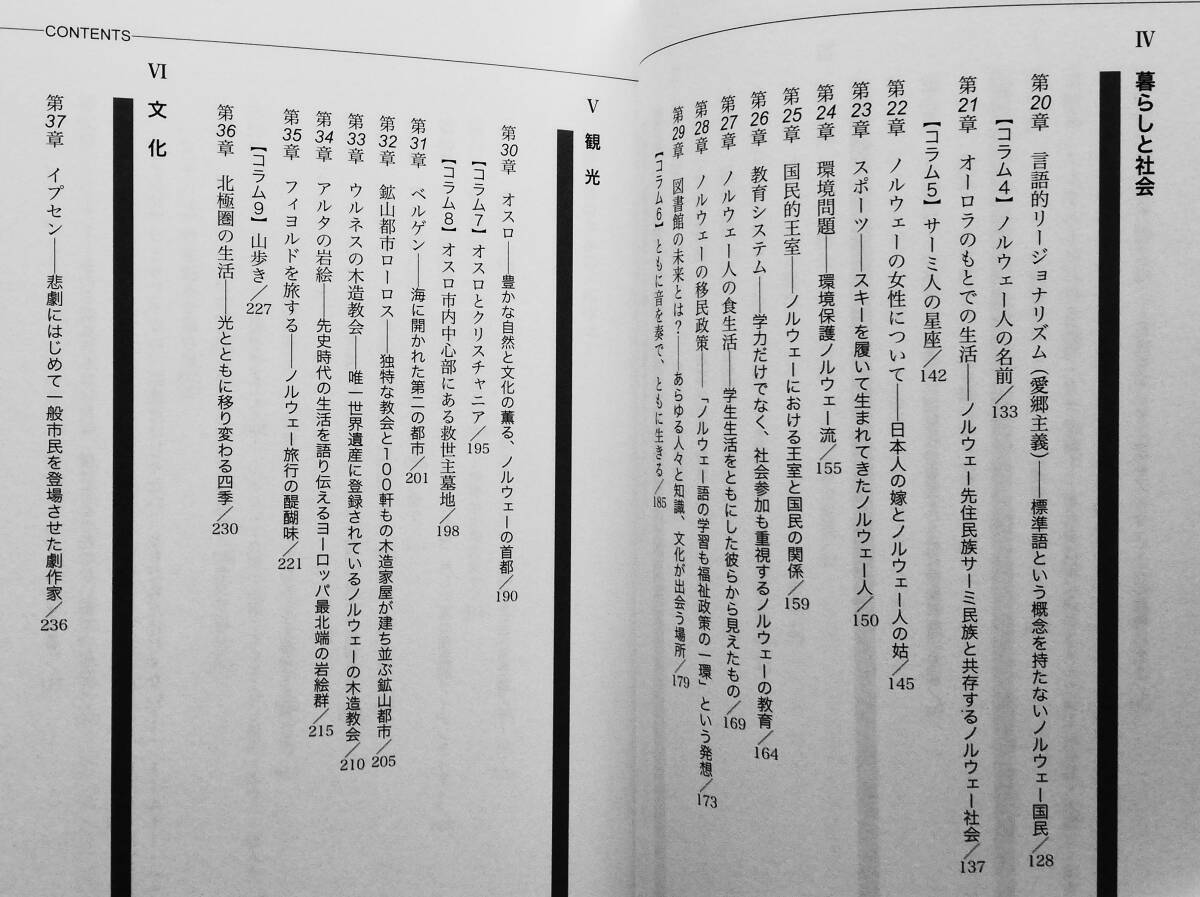 CONTENTS
Ⅳ 暮らしと社会
第20章 言語的リージョナリズム（愛郷主義）――標準語という概念を持たないノルウェー国民／128
【コラム4】ノルウェー人の名前／133
第21章 オーロラのもとでの生活――ノルウェー先住民族サーミ民族と共存するノルウェー社会／137
【コラム5】サーミ人の星座／142
第22章 ノルウェーの女性について――日本人の嫁とノルウェー人の姑／145
第23章 スポーツ――スキーを履いて生まれてきたノルウェー人／150
第24章 環境問題――環境保護ノルウェー流／155
第25章 国民的王室――ノルウェーにおける王室と国民の関係／159
第26章 教育システム――学力だけでなく、社会参加も重視するノルウェーの教育／164
第27章 ノルウェー人の食生活――学生生活をともにした彼らから見えたもの／169
第28章 ノルウェーの移民政策――「ノルウェー語の学習も福祉政策の一環」という発想／173
第29章 図書館の未来とは？――あらゆる人々と知識、文化が出会う場所／179
【コラム6】ともに音を奏で、ともに生きる／185
Ⅴ 観光
第30章 オスロ――豊かな自然と文化の薫る、ノルウェーの首都／190
【コラム7】オスロとクリスチャニア／195
【コラム8】オスロ市内中心部にある救世主墓地／198
第31章 ベルゲン――海に開かれた第二の都市／201
第32章 鉱山都市ローロス――独特な教会と100軒もの木造家屋が建ち並ぶ鉱山都市／205
第33章 ウルネスの木造教会――唯一世界遺産に登録されているノルウェーの木造教会／210
第34章 アルタの岩絵――先史時代の生活を語り伝えるヨーロッパ最北端の岩絵群／215
第35章 フィヨルドを旅する――ノルウェー旅行の醍醐味／221
【コラム9】山歩き／227
第36章 北極圏の生活――光とともに移り変わる四季／230
Ⅵ 文化
第37章 イプセン――悲劇にはじめて一般市民を登場させた劇作家／236